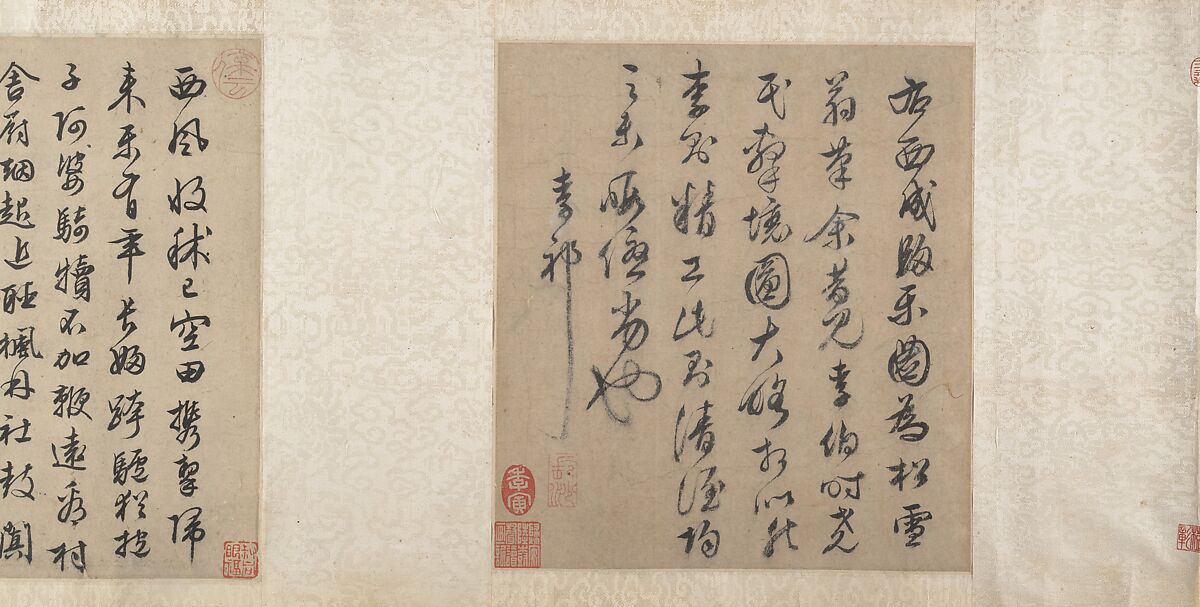 右西成歸樂圖為松雪
翁筆余嘗見李伯時堯
民擊壤圖大略相似然
李則精工此則清均
之未暇優劣也
李祁
西風收秫已空田攜挈歸
來樂有年長婦跨驢猶抱
子阿婆騎犢不加鞭遠看村
舍廚烟起近聽楓林社鼓闐